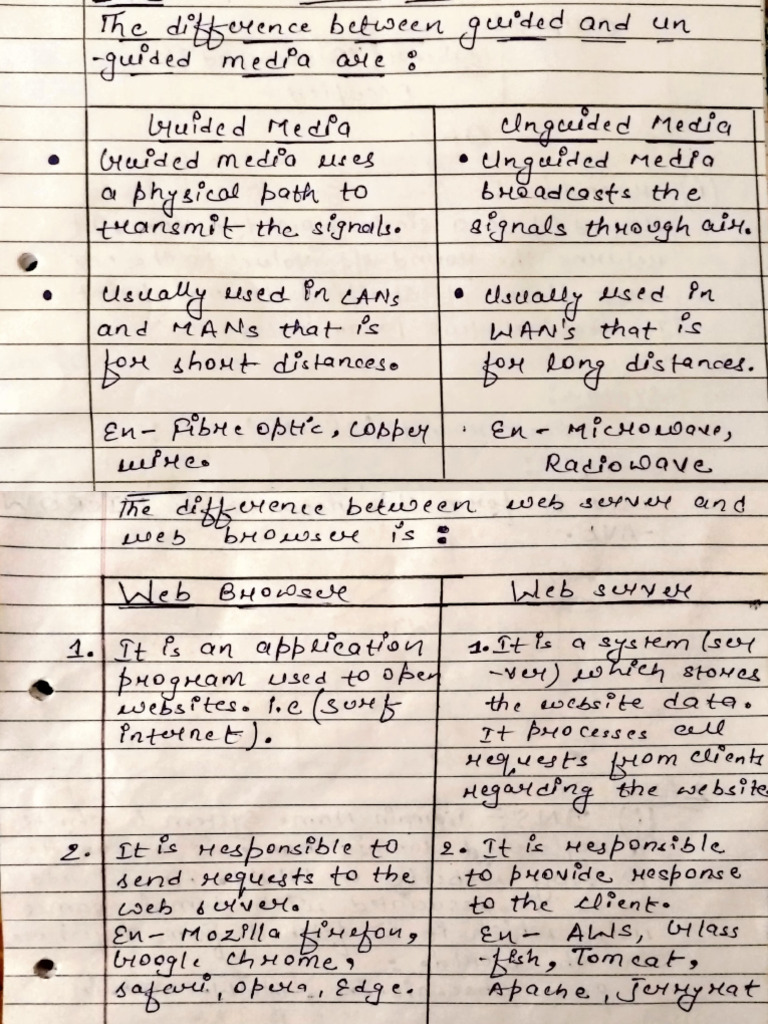 The difference between guided and un
-guided media are :
Guided Media
• Guided media uses
a physical path to
transmit the signals.
• Usually used in LANs
and MANs that is
for short distances.
Ex- Fibre optic, copper
wire.
Unguided Media
• Unguided Media
broadcasts the
signals through air.
• Usually used in
WAN's that is
for long distances.
Ex - Microwave,
Radiowave
The difference between web server and
web browser is :
Web Browser
1. It is an application
program used to open
websites. i.e (surf
internet).
2. It is responsible to
send requests to the
web server.
Ex- Mozilla firefox,
Google chrome,
safari, opera, Edge.
Web server
1. It is a system (ser
-ver) which stores
the website data.
It processes all
requests from clients
regarding the website
2. It is responsible
to provide response
to the client.
Ex- AWS, Glass
-fish, Tomcat,
Apache, Jerryrat